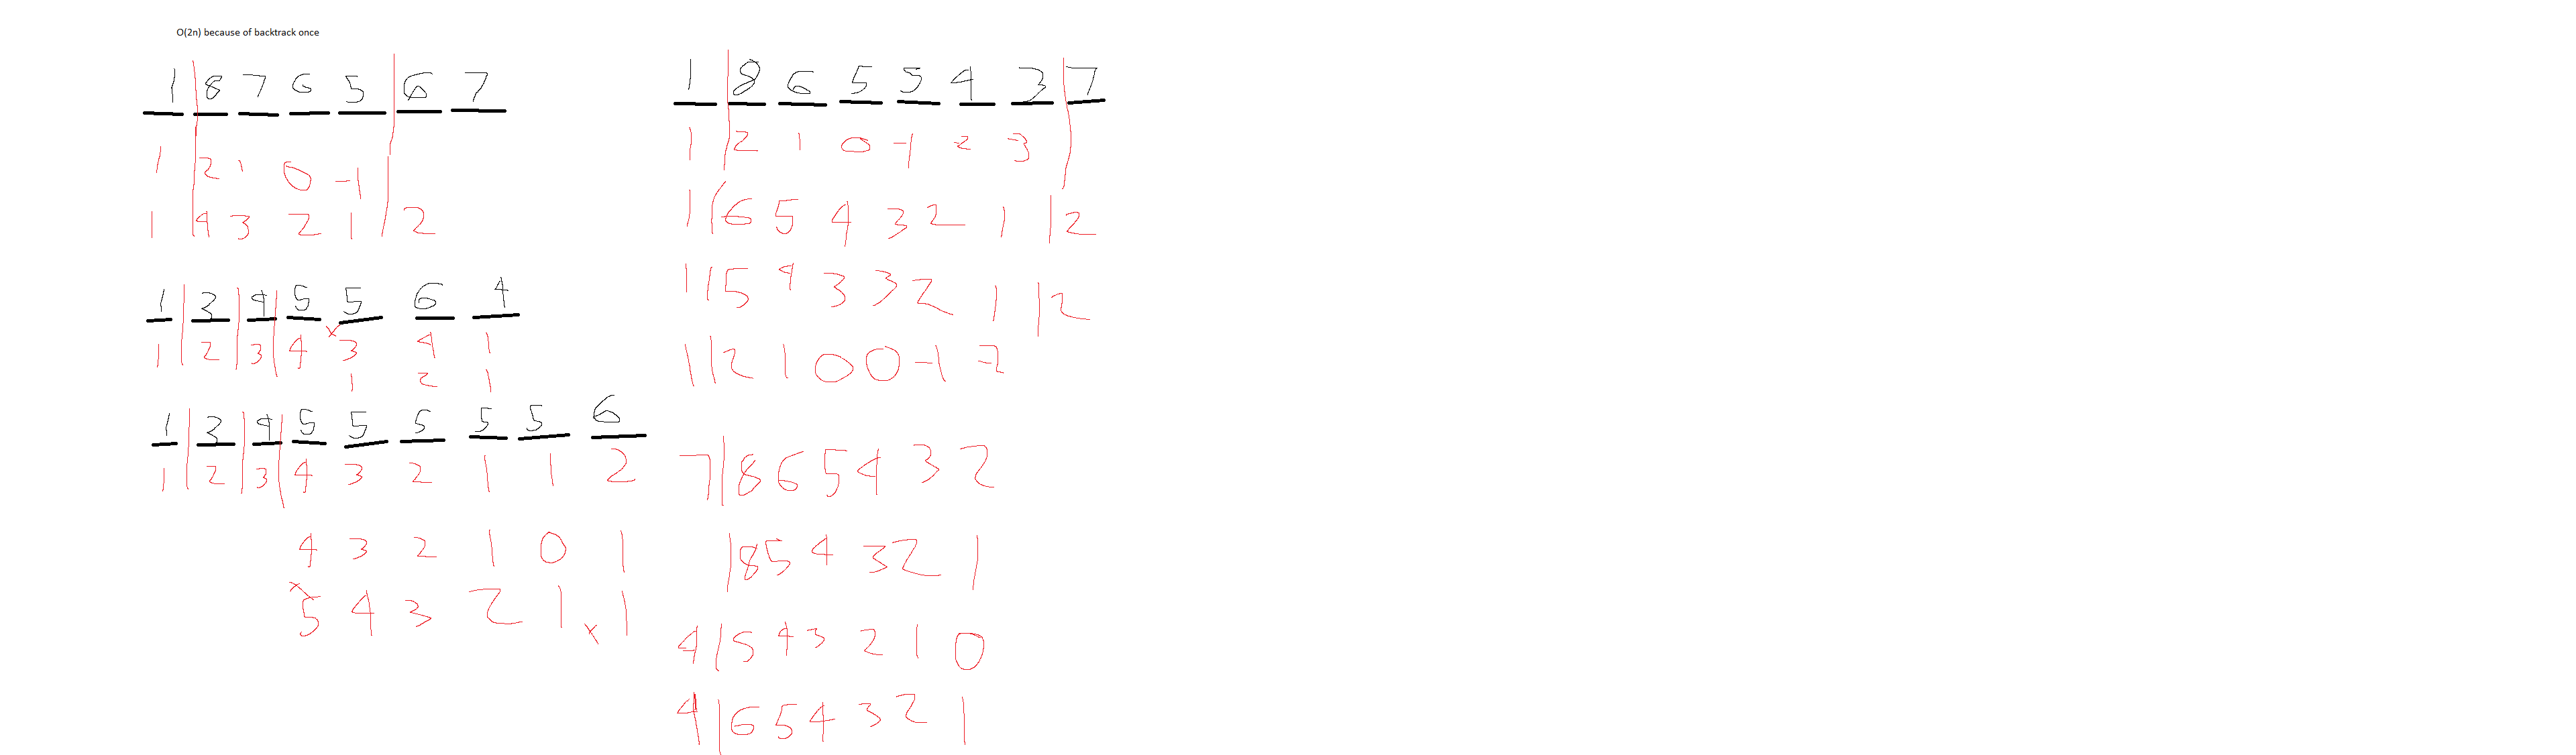 O(2n) because of backtrack once
1 8 7 6 5 6 7
1 2 1 0 -1
1 4 3 2 1 2
1 3 4 5 5 6 4
1 2 3 4 3 4 1
1 2 1
1 3 4 5 5 5 5 5 6
1 2 3 4 3 2 1 1 2
4 3 2 1 0 1
5 4 3 2 1 1
1 8 6 5 5 4 3 7
1 2 1 0 -1 -2 -3
1 6 5 4 3 2 1 2
1 5 4 3 3 2 1 2
1 2 1 0 0 -1 -2
7 8 6 5 4 3 2
8 5 4 3 2 1
4 5 4 3 2 1 0
4 6 5 4 3 2 1